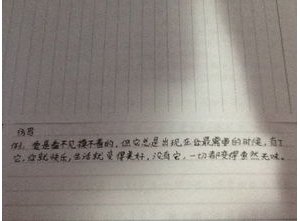 仿写
例:爱是看不见摸不着的,但它总是出现在你最需要的时候,有了
它,你就快乐,生活就变得美好,没有它,一切都变得索然无味。